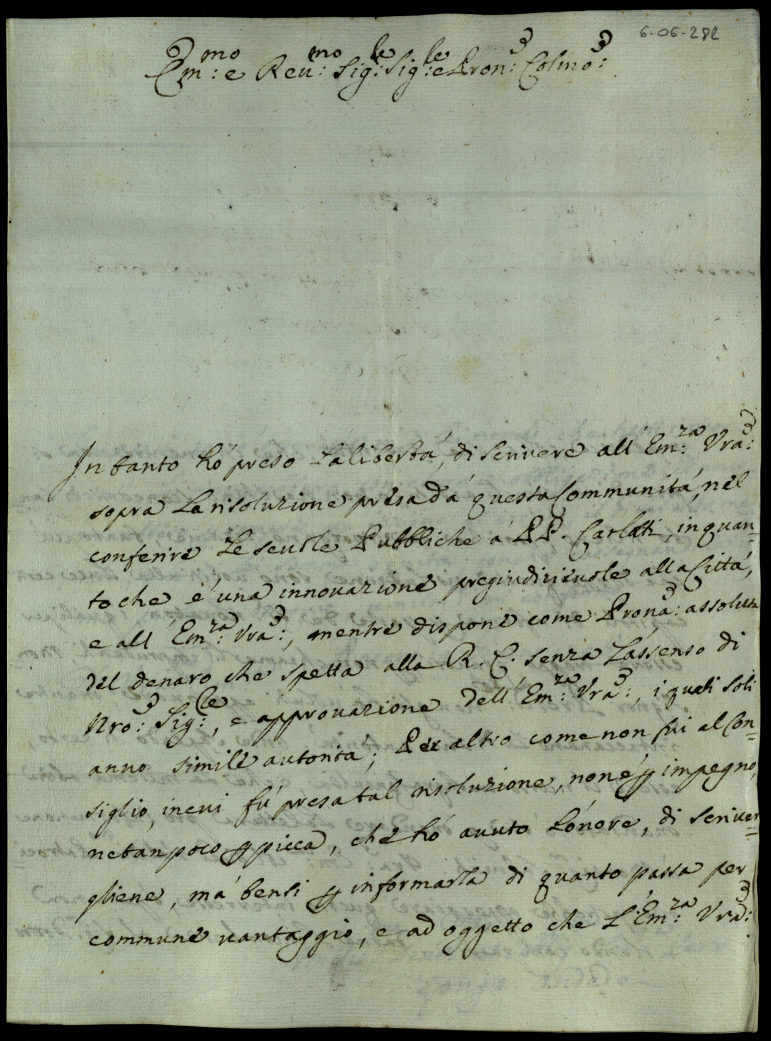 6-06-282
Em:mo e Reu:mo Sig:le Sig:le e Pron: Colmo:
In tanto hó preso La libertá, di scrivere all' Em:za Vra:
sopra La risoluzione presa dá questa Communitá, nel
conferire Le scuole Pubbliche á PP. Carlotti, in quan=
to che é una innovazione pregiudizievole alla Cittá,
e all' Em:za Vra:, mentre dispone come Prona: assoluta
del denaro che spetta alla R. C. senza L'assenso di
Nro: Sig:le, e approvazione dell' Em:za Vra:, i quali soli
anno simile autoritá; Per altro come non fui al Con=
siglio, in cui fú presa tal risoluzione, non é p impegno,
ne tanpoco p picca, che hó auuto L'onore, di scriver
gliene, má bensi p informarla di quanto passa per
commune vantaggio, e ad oggetto che L'Em:za Vra: